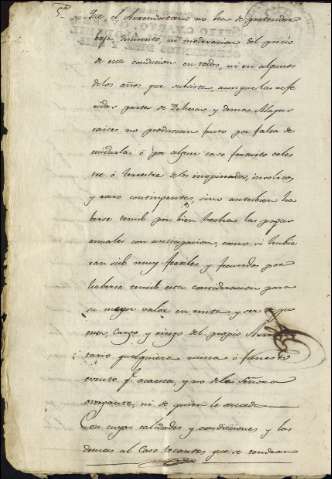 5ª Que el Arrendatario no ha de pretender
baja, dimento, ni moderacion del precio
de esta condicion en todos, ni en algunos
de los años que subsista, aunque las refe
ridas partes de Dehesas, y demas Alajas
raices no produzcan fruto por falta de
cuidarlas ó por algun caso fortuito celes
te ó terrestre de los inopinados, insolitos,
y raros contingentes, sino antes bien ha
berse tenido por bien hechas las pagas
anuales con anticipacion, como si hubie
ran sido muy fertiles, y fecundos por
haberse tenido esta consideracion para
su mejor valor en renta, y ser de
cargo, y riesgo del propio
tario qualquiera nueva ó funesto
evento qe. acaezca, y no de la Señora
ni de quien le suceda
Con cuyas calidades y condiciones y las
demas al Caso tocantes que se tendran